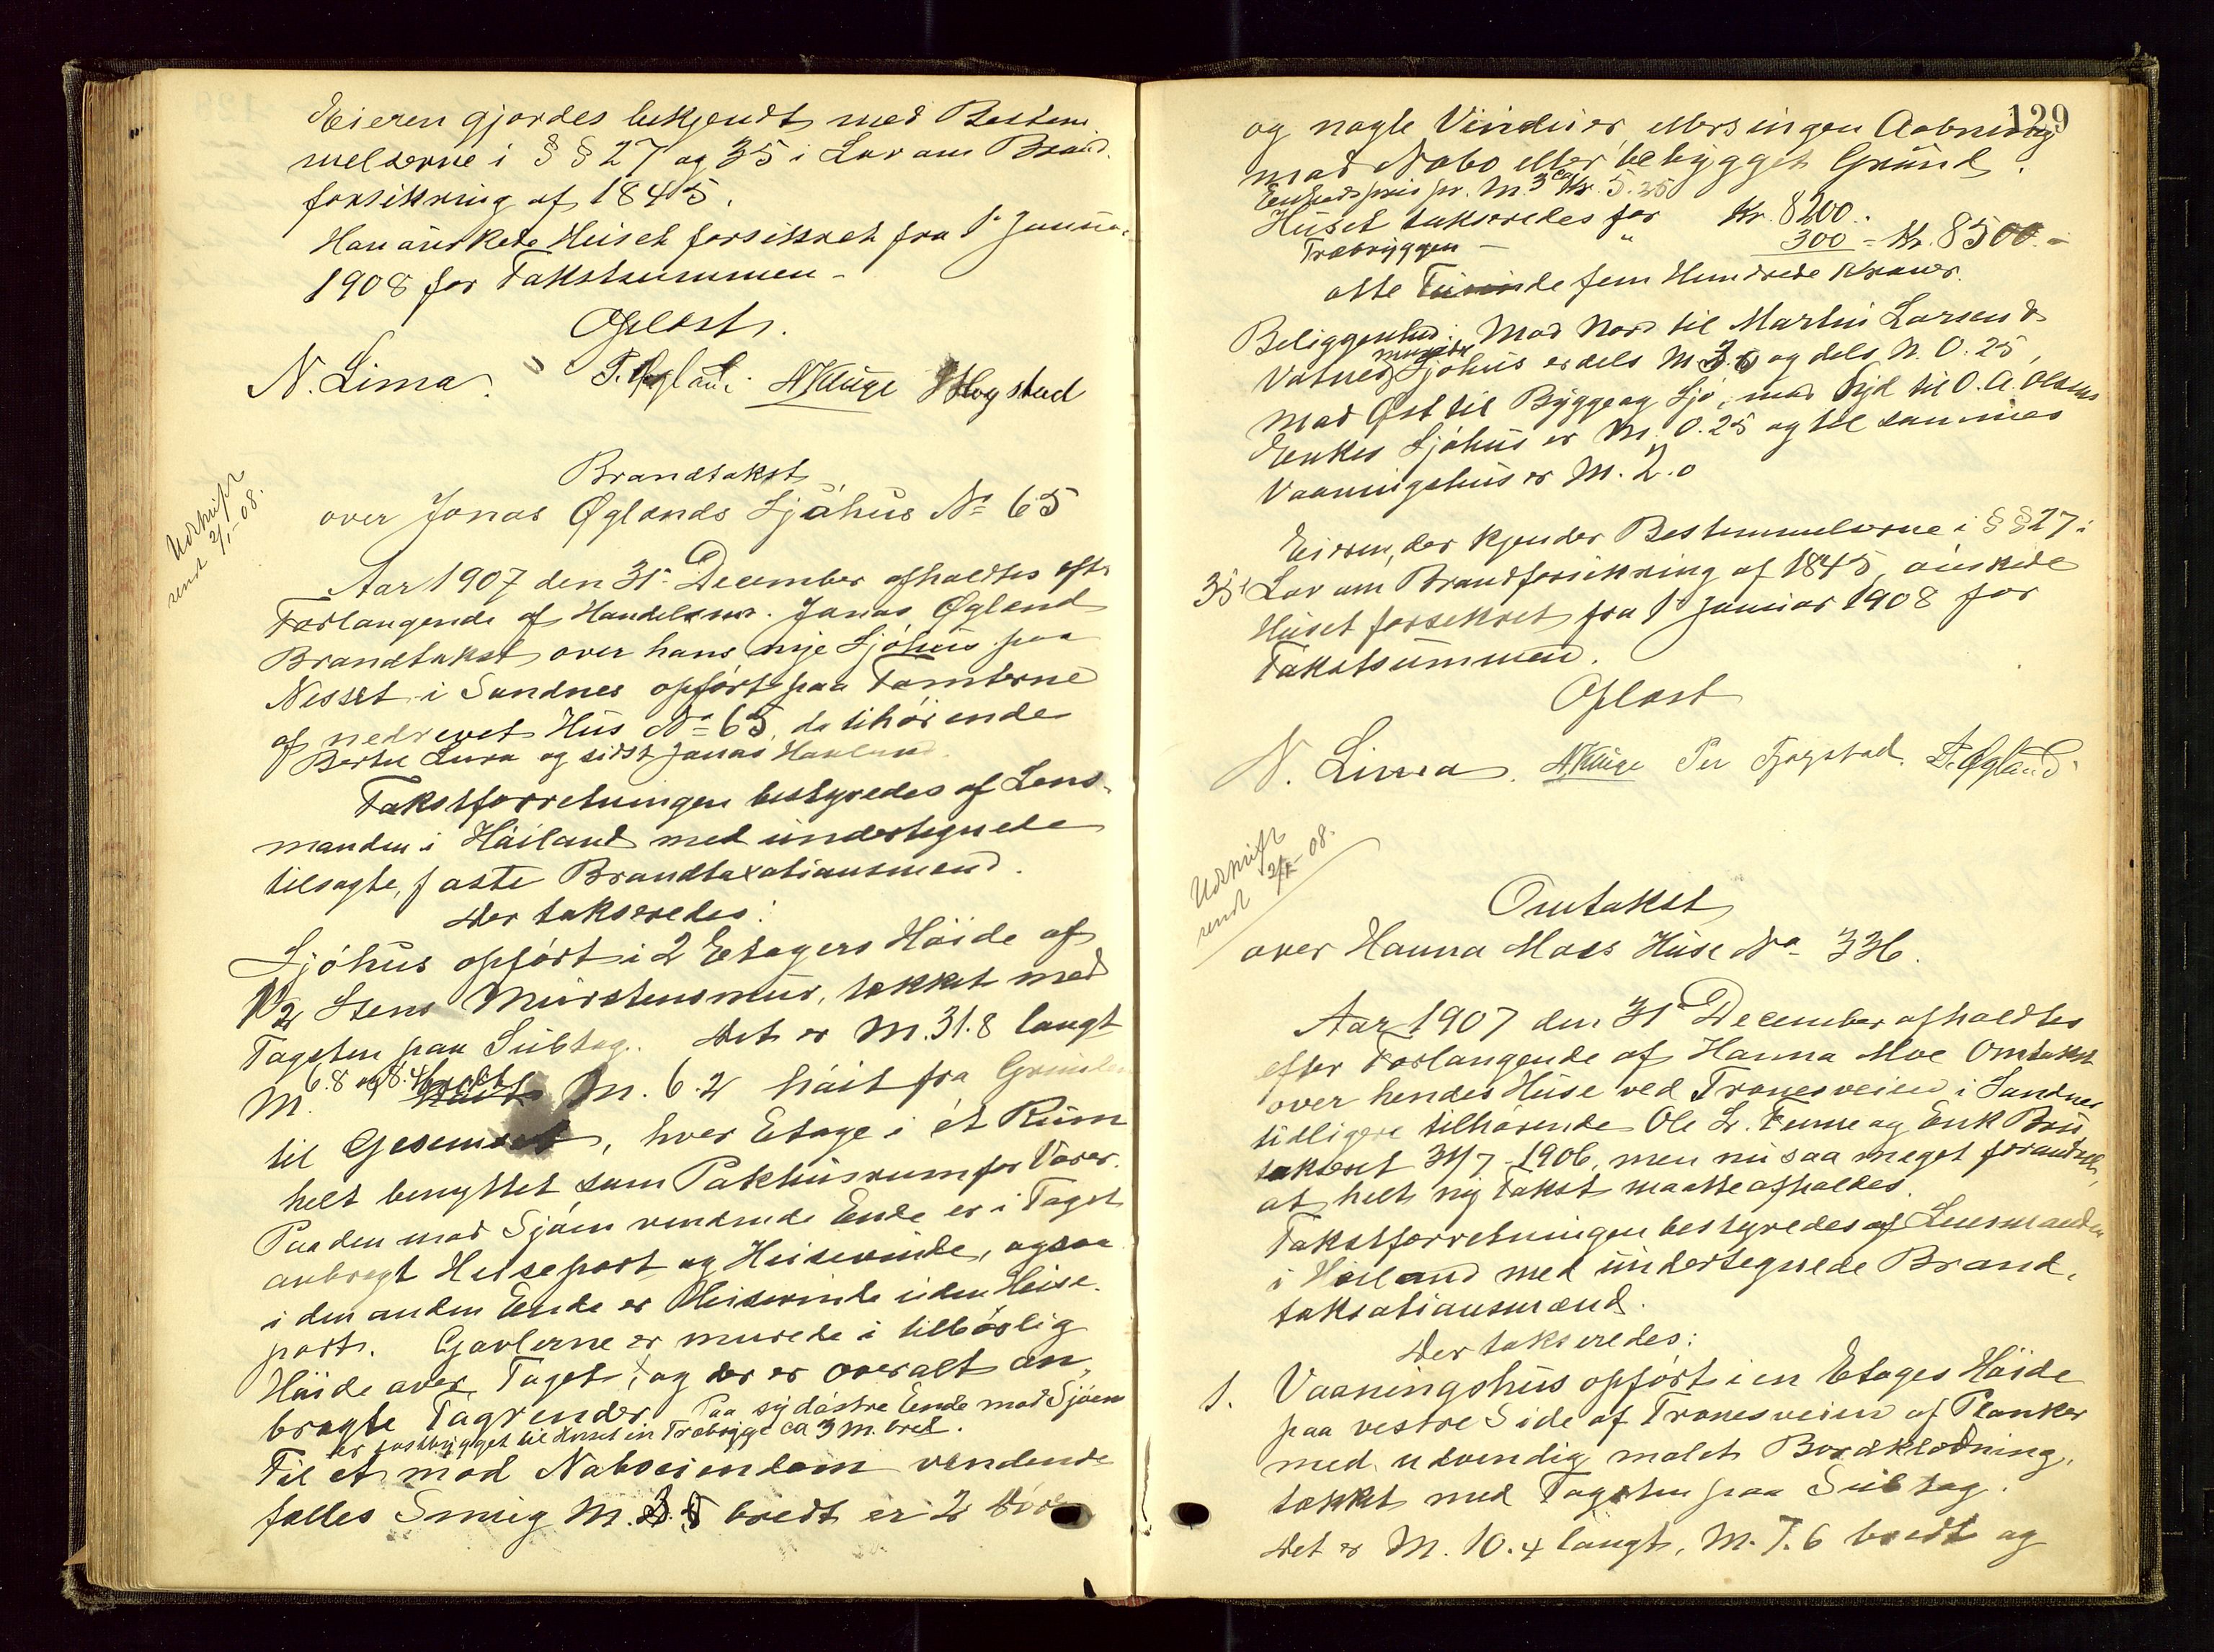 Eieren gjordes bekjendt med Bestem
melserne i §§ 27 og 35 i Lov om Brand.
forsikring af 1845.
Han ønskede Huset forsikret fra 1ste Janua.
1908 for Takstsummen -
Oplæst.
N. Lima. T. Øgland. A Kluge P Hogstad
Udskrift
sendt 2/1-08.
Brandtakst
over Jonas Øglands Sjøhus No 65
Aar 1907 den 31te December afholdtes efter
Forlangende af Handelsm. Jonas Øgland
Brandtakst over hans nye Sjøhus paa
Nesset i Sandnes opført paa Tomterne
af nedrevet Hus No 65, da tihørende
Bertel Lura og sidst Jonas Haaland.
Takstforretningen bestyredes af Lens-
manden i Høiland med undertegnede
tilsagte, faste Brandtaxationsmænd.
Der takseredes:
Sjøhus opført i 2 Etagers Høide af
1 1/2 Stens Murstensmur, tækket med
Tagsten paa Sutag. Det er M. 31.8 langt
M. 6.8 og 8.4 bredt M. 6.2 høit fra Grunden
til Gesimset, hver Etage i ét Rum
helt benyttet som Pakhusrum for Varer.
Paa den mod Sjøen vendende Ende er i Taget
anbragt Heiseport og Heisevinde, ogsaa
i den anden Ende er Heisevinde uden Heise-
port. Gavlerne er murede i tilbørlig
Høide over Taget, og der er overalt an-
bragte Tagrender. Paa sydøstre Ende mod Sjøen
er fastbygget til Huset en Træbrygge ca 3 M. bred.
Til et mod Naboeiendom vendende
fælles Smug M. 3.5 bredt er 2 Døre
129
og nogle Vinduer ellers ingen Aabning
mod Nabo eller bebygget Grund.
Enhedspris pr. M.3 ca Kr. 5.25
Huset takseredes for Kr. 8200.
Træbryggen - " 300 = Kr. 8500.-
otte Tusinde fem Hundrede Kroner.
Beliggenhed: Mod Nord til Martin Larsen &
Vatnes murede Sjøhus er dels M 3.0 og dels M. 0.25,
mod Øst til Brygge og Sjø, mod Syd til O. A. Olsens
Enkes Sjøhus er M. 0.25 og til sammes
Vaaningshus er M. 2.0
Eieren, der kjender Bestemmelserne i §§ 27 i
35 i Lov om Brandforsikring af 1845, ønskede
Huset forsikret fra 1ste Januar 1908 for
Takstsummen.
Oplæst
N. Lima. A Kluge Per Hogstad. T. Øgland.
Udskrift
sendt 2/1-08.
Omtakst
over Hanna Moes Huse No 336.
Aar 1907 den 31te December afholdtes
efter Forlangende af Hanna Moe Omtakst
over hendes Huse ved Tronesveien i Sandnes
tidligere tilhørende Ole L. Tunne og Enk Bru
takseret 31/7-1906, men nu saa meget forandret,
at helt ny Takst maatte afholdes.
Takstforretningen bestyredes af Lensmanden
i Høiland med undertegnede Brand-
taksationsmænd.
Der takseredes:
1. Vaaningshus opført i en Etages Høide
paa vestre Side af Tronesveien af Planker
med udvendig malet Bordklædning,
tækket med Tagsten paa Sutag.
Det er M. 10.4 langt, M. 7.6 bredt og